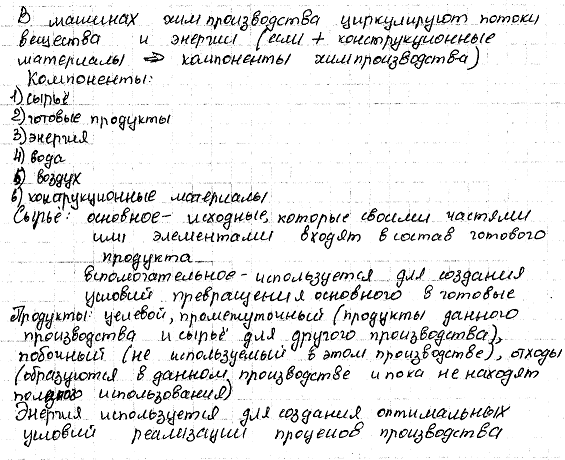 В машинах химпроизводства циркулируют потоки
вещества и энергии (если + конструкционные
материалы => компоненты химпроизводства)
Компоненты:
1) сырьё
2) готовые продукты
3) энергия
4) вода
5) воздух
6) конструкционные материалы
Сырьё: основное - исходные, которые своими частями
или элементами входят в состав готового
продукта
вспомогательное - используется для создания
условий превращения основного в готовые
Продукты: целевой, промежуточный (продукты данного
производства и сырьё для другого производства),
побочный (не используемый в этом производстве), отходы
(образуются в данном производстве и пока не находят
полезного использования)
Энергия используется для создания оптимальных
условий реализации процессов производства